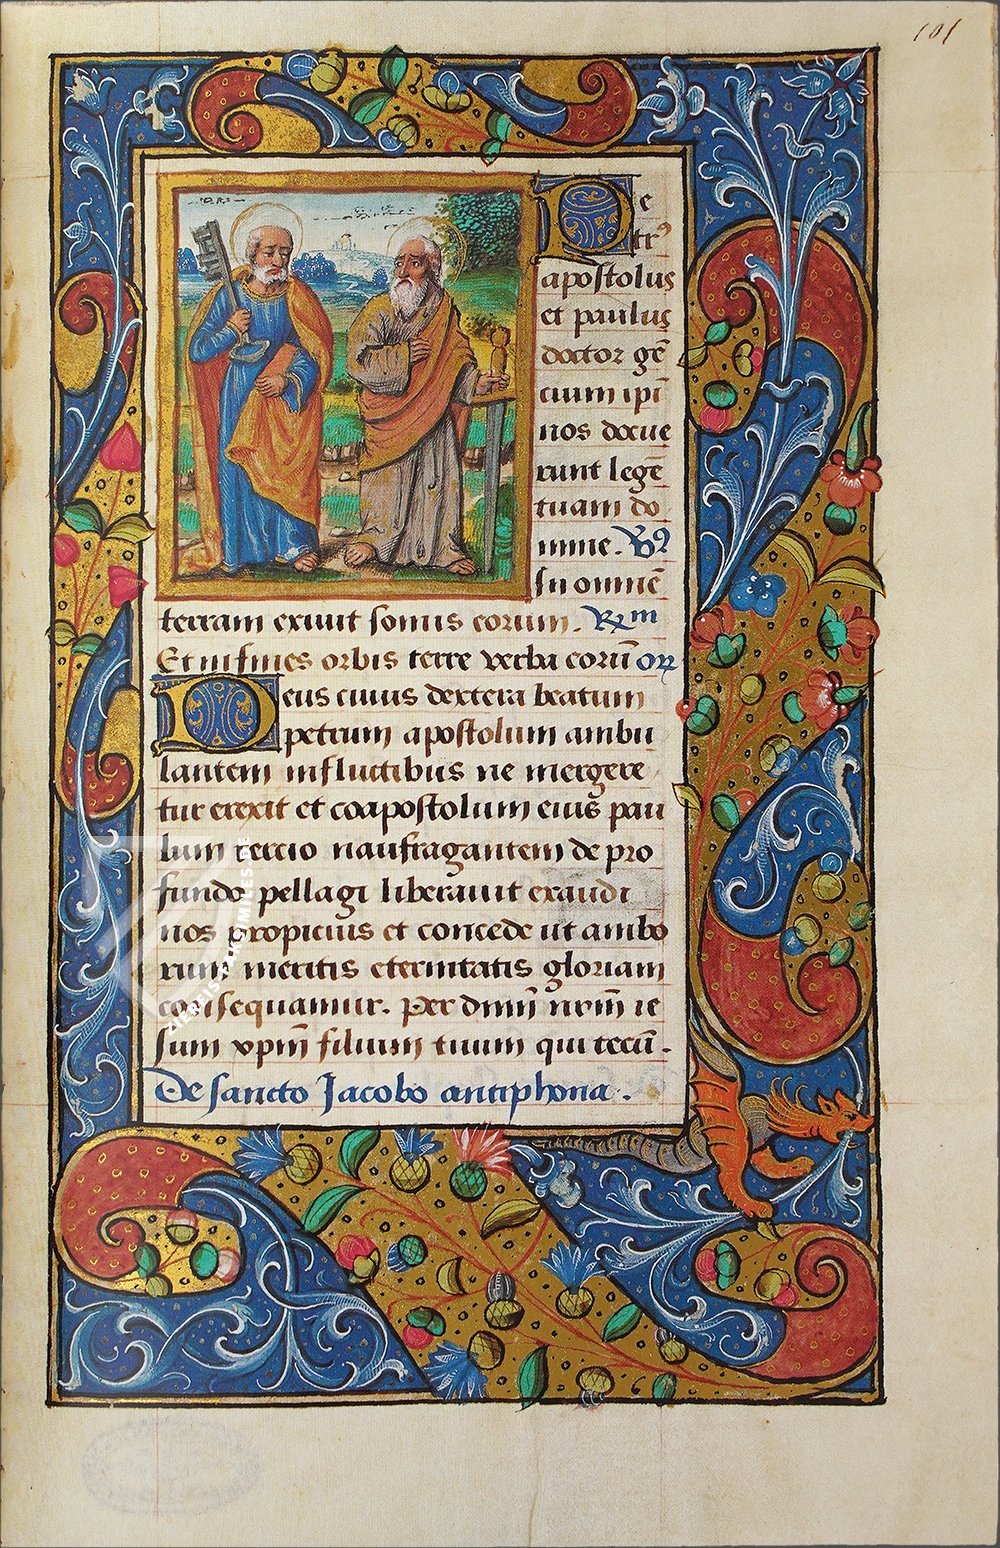 101
Pe
trꝰ
apostolus
et paulus
doctor gē
cium ipī
nos docue
runt legē
tuam do
mine. V᷒
In omnē
terram exivit sonus eorum. R̄m
Et in fines orbis terre verba eorū or̄
Deus cuius dextera beatum
petrum apostolum ambu
lantem in fluctibus ne mergere
tur erexit et coapostolum eius pau
lum tercio naufragantem de pro
fundo pellagi liberavit exaudi
nos propicius et concede ut ambo
rum meritis eternitatis gloriam
consequamur. Per dnm̄ nr̄m ie
sum xpm̄ filium tuum qui tecū.
De sancto Jacobo antiphona.
ZIEREIS FAKSIMILES.DE